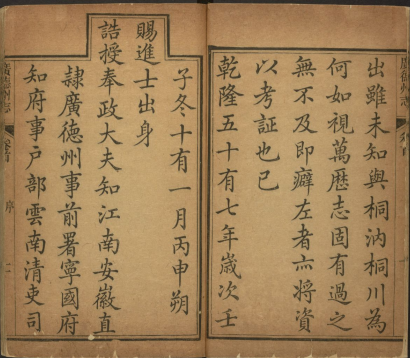 出雖未知與桐汭桐川為
何如視萬歷志固有過之
無不及即癖左者亦將資
以考証也已
乾隆五十有七年歲次壬
子冬十有一月丙申朔
賜進士出身
誥授奉政大夫知江南安徽直
隸廣德州事前署寧國府
知府事戶部雲南清吏司
廣德州志
序
二